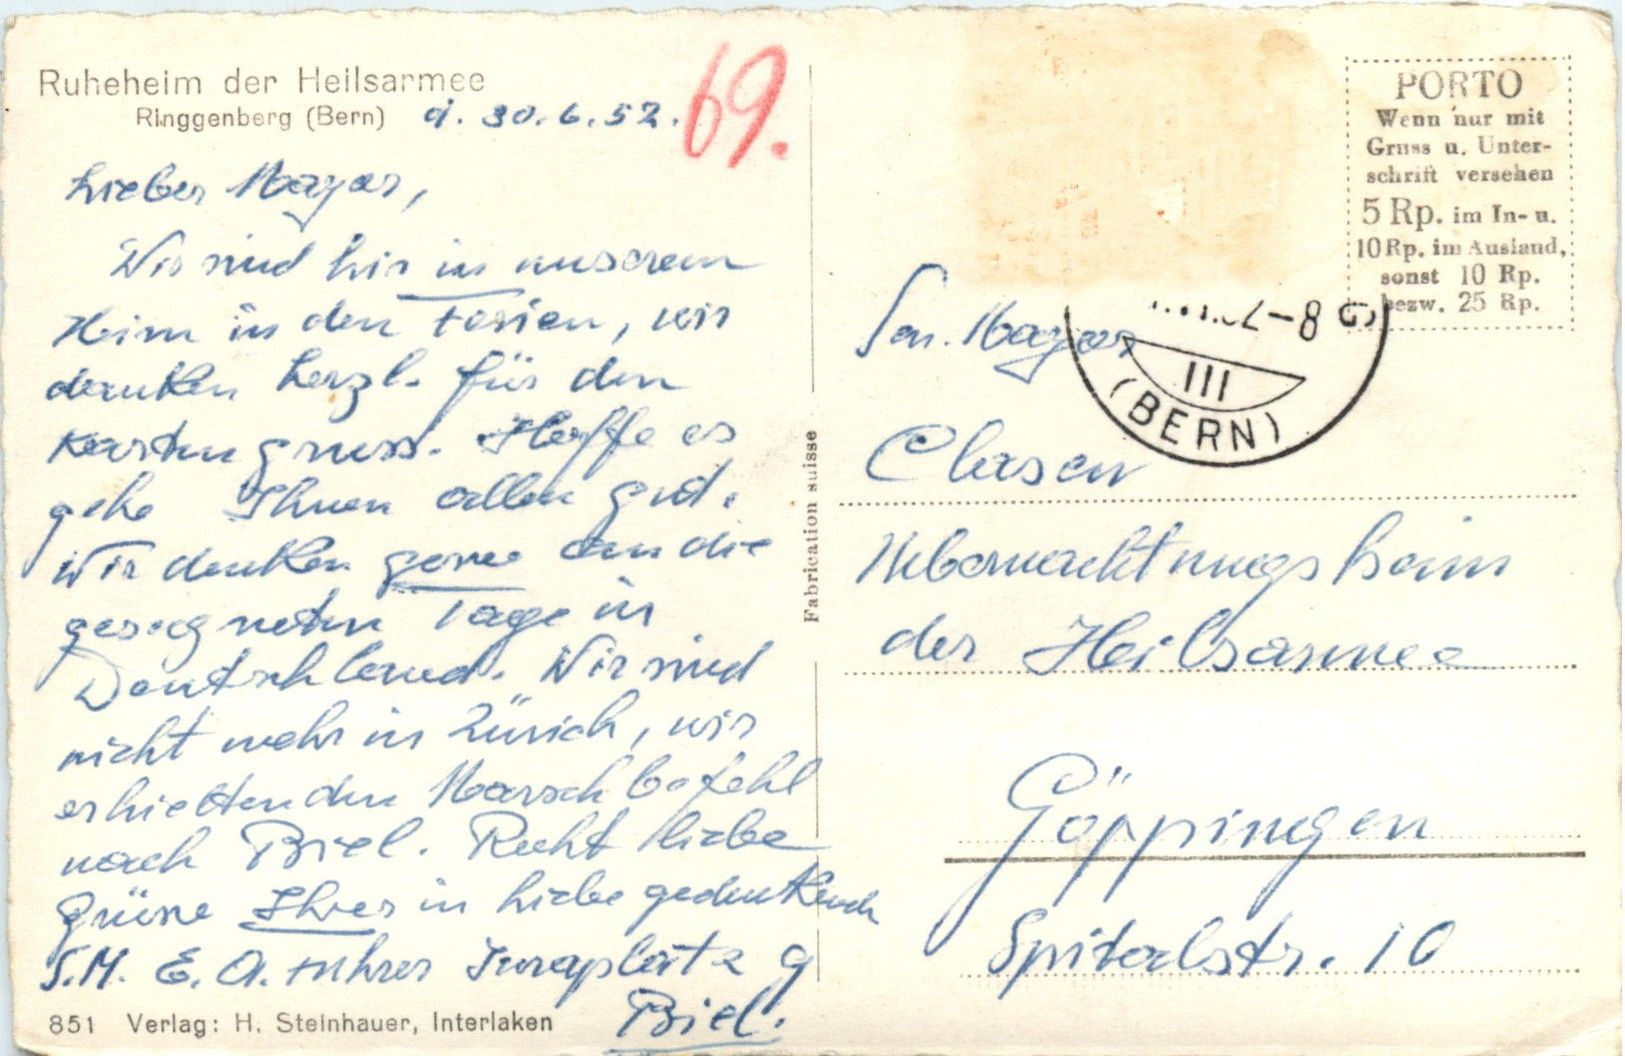 Ruheheim der Heilsarmee
Ringgenberg (Bern) d. 30.6.52.
69.
Lieber Major,
Wir sind hir in unserem
Heim in den Ferien, wir
danken herzl. für den
Kartengruss. Hoffe es
gehe Ihnen allen gut.
Wir denken gerne an die
gesegneten Tage in
Deutschland. Wir sind
nicht mehr in Zürich, wir
erhielten den Marschbefehl
nach Biel. Recht liebe
Grüsse Ihrer in Liebe gedenkend
S.M. E. A. Fuhrer Juraplatz 9
Biel.
851 Verlag: H. Steinhauer, Interlaken
Fabrication suisse
PORTO
Wenn nur mit
Gruss u. Unter-
schrift versehen
5 Rp. im In- u.
10 Rp. im Ausland,
sonst 10 Rp.
bezw. 25 Rp.
2-8
III
(BERN)
Sen. Major
Clasen
Uebernachtungsheim
der Heilsarmee
Göppingen
Spitalstr. 10